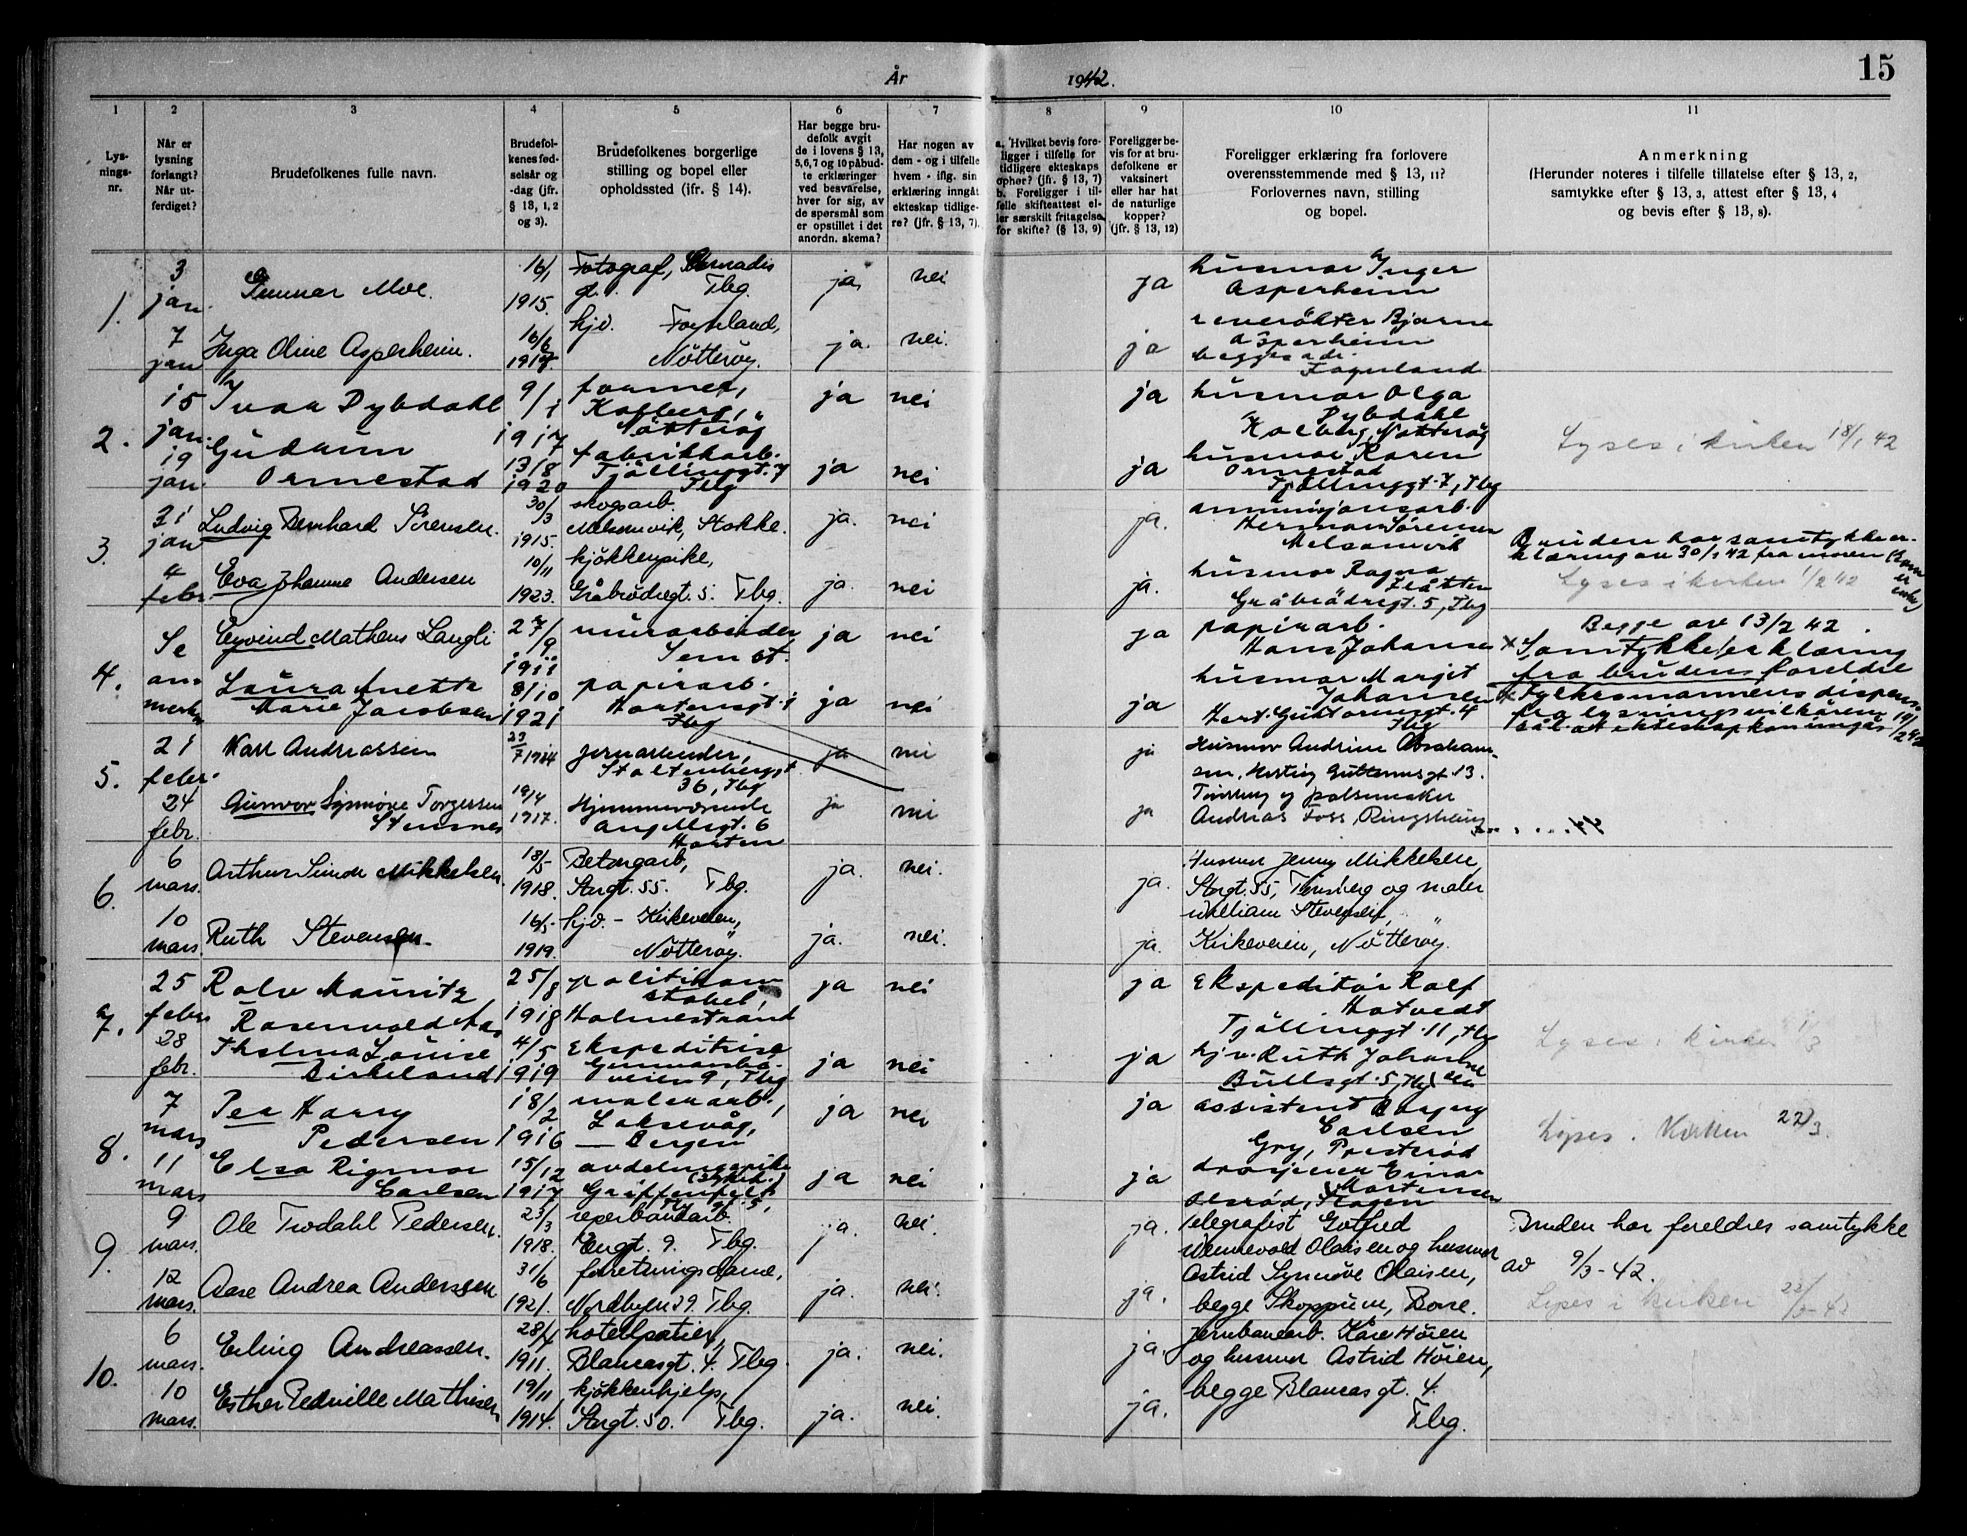 År 1942.
15
1 2 3 4 5 6 7 8 9 10 11
Lys-
nings-
nr.
Når er
lysning
forlangt?
Når ut-
ferdiget?
Brudefolkenes fulle navn.
Brudefol-
kenes fød-
selsår og
-dag (jfr.
§ 13, 1, 2
og 3).
Brudefolkenes borgerlige
stilling og bopel eller
opholdssted (ifr. § 14).
Har begge bru-
defolk avgit
de i lovens § 13,
5,6,7 og 10 påbud-
te erklæringer
ved besvarelse,
hver for sig, av
de spørsmål som
er opstillet i det
anordn. skema?
Har nogen av
dem - og i tilfelle
hvem - iflg. sin
erklæring inngått
ekteskap tidlige-
re? (jfr. § 13, 7).
a. Hvilket bevis fore-
ligger i tilfelle for
tidligere ekteskaps
ophør? (jfr. § 13, 7)
b. Foreligger i til-
felle skifteattest el-
ler særskilt fritagelse
for skifte? (§ 13, 9)
Foreligger be-
vis for at bru-
defolkene er
vaksinert
eller har hat
de naturlige
kopper?
(jfr. § 13, 12)
Foreligger erklæring fra forlovere
overensstemmende med § 13, 11?
Forlovernes navn, stilling
og bopel.
Anmerkning
(Herunder noteres i tilfelle tillatelse efter § 13, 2,
samtykke efter § 13, 3, attest efter § 13, 4
og bevis efter § 13, 8).
1.
3
jan.
Gunnar Moe.
16/1
1915.
Fotograf,
Tbg.
ja
nei
ja
husmor Inger
Asperheim
7
jan
Inga Oline Asperheim.
16/6
hjv. Føynland,
Nøtterøy.
ja.
nei.
ja
Bjarne
Asperheim
begge adr.
2.
15
jan.
Ivar Dybdahl
9/1
1917
Nøtterøy
ja
nei
ja
husmor Olga
Dybdahl
Nøtterøy
19
jan.
Gudrun
Ormestad
13/8
1920
fabrikkarb.
Tjøllinggt. 7
Tbg
ja
nei
ja
husmor Karen
Ormestad
Tjøllinggt. 7, Tbg
Lyses i kirken 18/1 42
3.
21
jan
Ludvig Bernhard Sørensen.
30/3
1915.
skogsarb.
Melsomvik, Stokke.
ja.
nei
ja.
ammunisjonsarb.
Herman Sørensen
Melsomvik
4
febr.
Eva Johanne Andersen
10/11
1923.
kjøkkenpike,
Gråbrødregt. 5. Tbg.
ja.
nei
ja.
husmor Ragna
Gråbrödregt. 5, Tbg
Bruden har samtykkeer-
klæring av 30/1 42 fra moren
Lyses i kirken 1/2 42
4.
Se
an-
merkn
Eyvind Mathens Langli
27/9
1911
murarbeider
Sem st.
ja
nei
ja
papirarb.
Hans Johansen
Laura Anette
Marie Jacobsen
8/10
1921
papirarb.
Hortensgt. 1
Tbg
ja
nei
ja
husmor Margit
Johansen
Tbg
Begge av 13/2 42.
Samtykkeerklæring
fra brudens foreldre
Fylkesmannens dispens.
fra lysningsvilkårene 19/2 42
så at ekteskap kan inngås
5.
21
febr.
Karl Andreassen
23/7 1914
jernarbeider,
Stoltenbergsgt.
36, Tbg
ja
nei
ja
Husmor Andrine Abraham-
sen,
24
febr.
Gunvor Synnøve Torgersen
Stensnes
19/4
1917.
Hjemmeværende
6
Horten
ja
nei
ja
Tønsberg og pølsemaker
Andreas Foss
6.
6
mars.
Arthur Mikkelsen
18/5
1918.
Betongarb,
Storgt. 55. Tbg.
ja.
nei.
ja.
Husmor Jenny Mikkelsen,
Storgt. 55, Tønsberg og maler
10
mars.
Ruth Stevensen.
16/5
1919.
hjv. - Kirkeveien,
Nøtterøy.
ja.
nei.
ja.
William
Kirkeveien, Nøtterøy.
7.
25
febr.
Rolv Mauritz
Rosenvold Aas
25/8
1918
Holmestrand
ja
nei
ja
Ekspeditør Rolf
Hotvedt
Tjøllinggt. 11, Tbg
28
febr.
Thelma Louise
Birkeland
4/5
1919
Ekspeditrise
veien 9, Tbg
ja
nei
ja
hjv. Ruth Johanne
Bullsgt. 5, Tbg
Lyses i kirken 1/3
8.
7
mars
Per Harry
Pedersen
18/2
1916
malerarb.,
Laksevåg,
Bergen
ja
nei
ja
assistent
Carlsen
Gry, Presterød
11
mars
Elsa Rigmor
Carlsen
15/12
1917
Griffenfelts
gt. 5,
ja
nei
ja
drosjeeier Einar
Mortensen
Olsrød, Slagen
Lyses i Kirken 22/3.
9.
9
mars.
Ole Trodahl Pedersen.
23/3
1918.
reperbanearb.
Engt. 9. Tbg.
ja.
nei.
ja.
Telegrafist Gotfred
Wennevold Olaisen og husmor
12
mars.
Aase Andrea Anderssen
31/6
1921.
forretningsdame,
Nordbyen 29. Tbg.
ja.
nei.
ja.
Astrid Synnøve Olaisen,
begge Skoppum, Borre.
Bruden har foreldres samtykke
av 9/3-42.
Lyses i kirken 22/3-42
10.
6
mars.
Erling Andreassen.
28/4
1911.
hotellportier,
Blancasgt. 4. Tbg.
ja.
nei.
ja.
Jernbanearb. Kåre Høien
og husmor Astrid Høien,
10
mars.
Esther Pedville Mathisen
19/11
1914.
kjøkkenhjelp,
Storgt. 50. Tbg.
ja.
nei.
ja.
begge Blancasgt. 4.
Tbg.